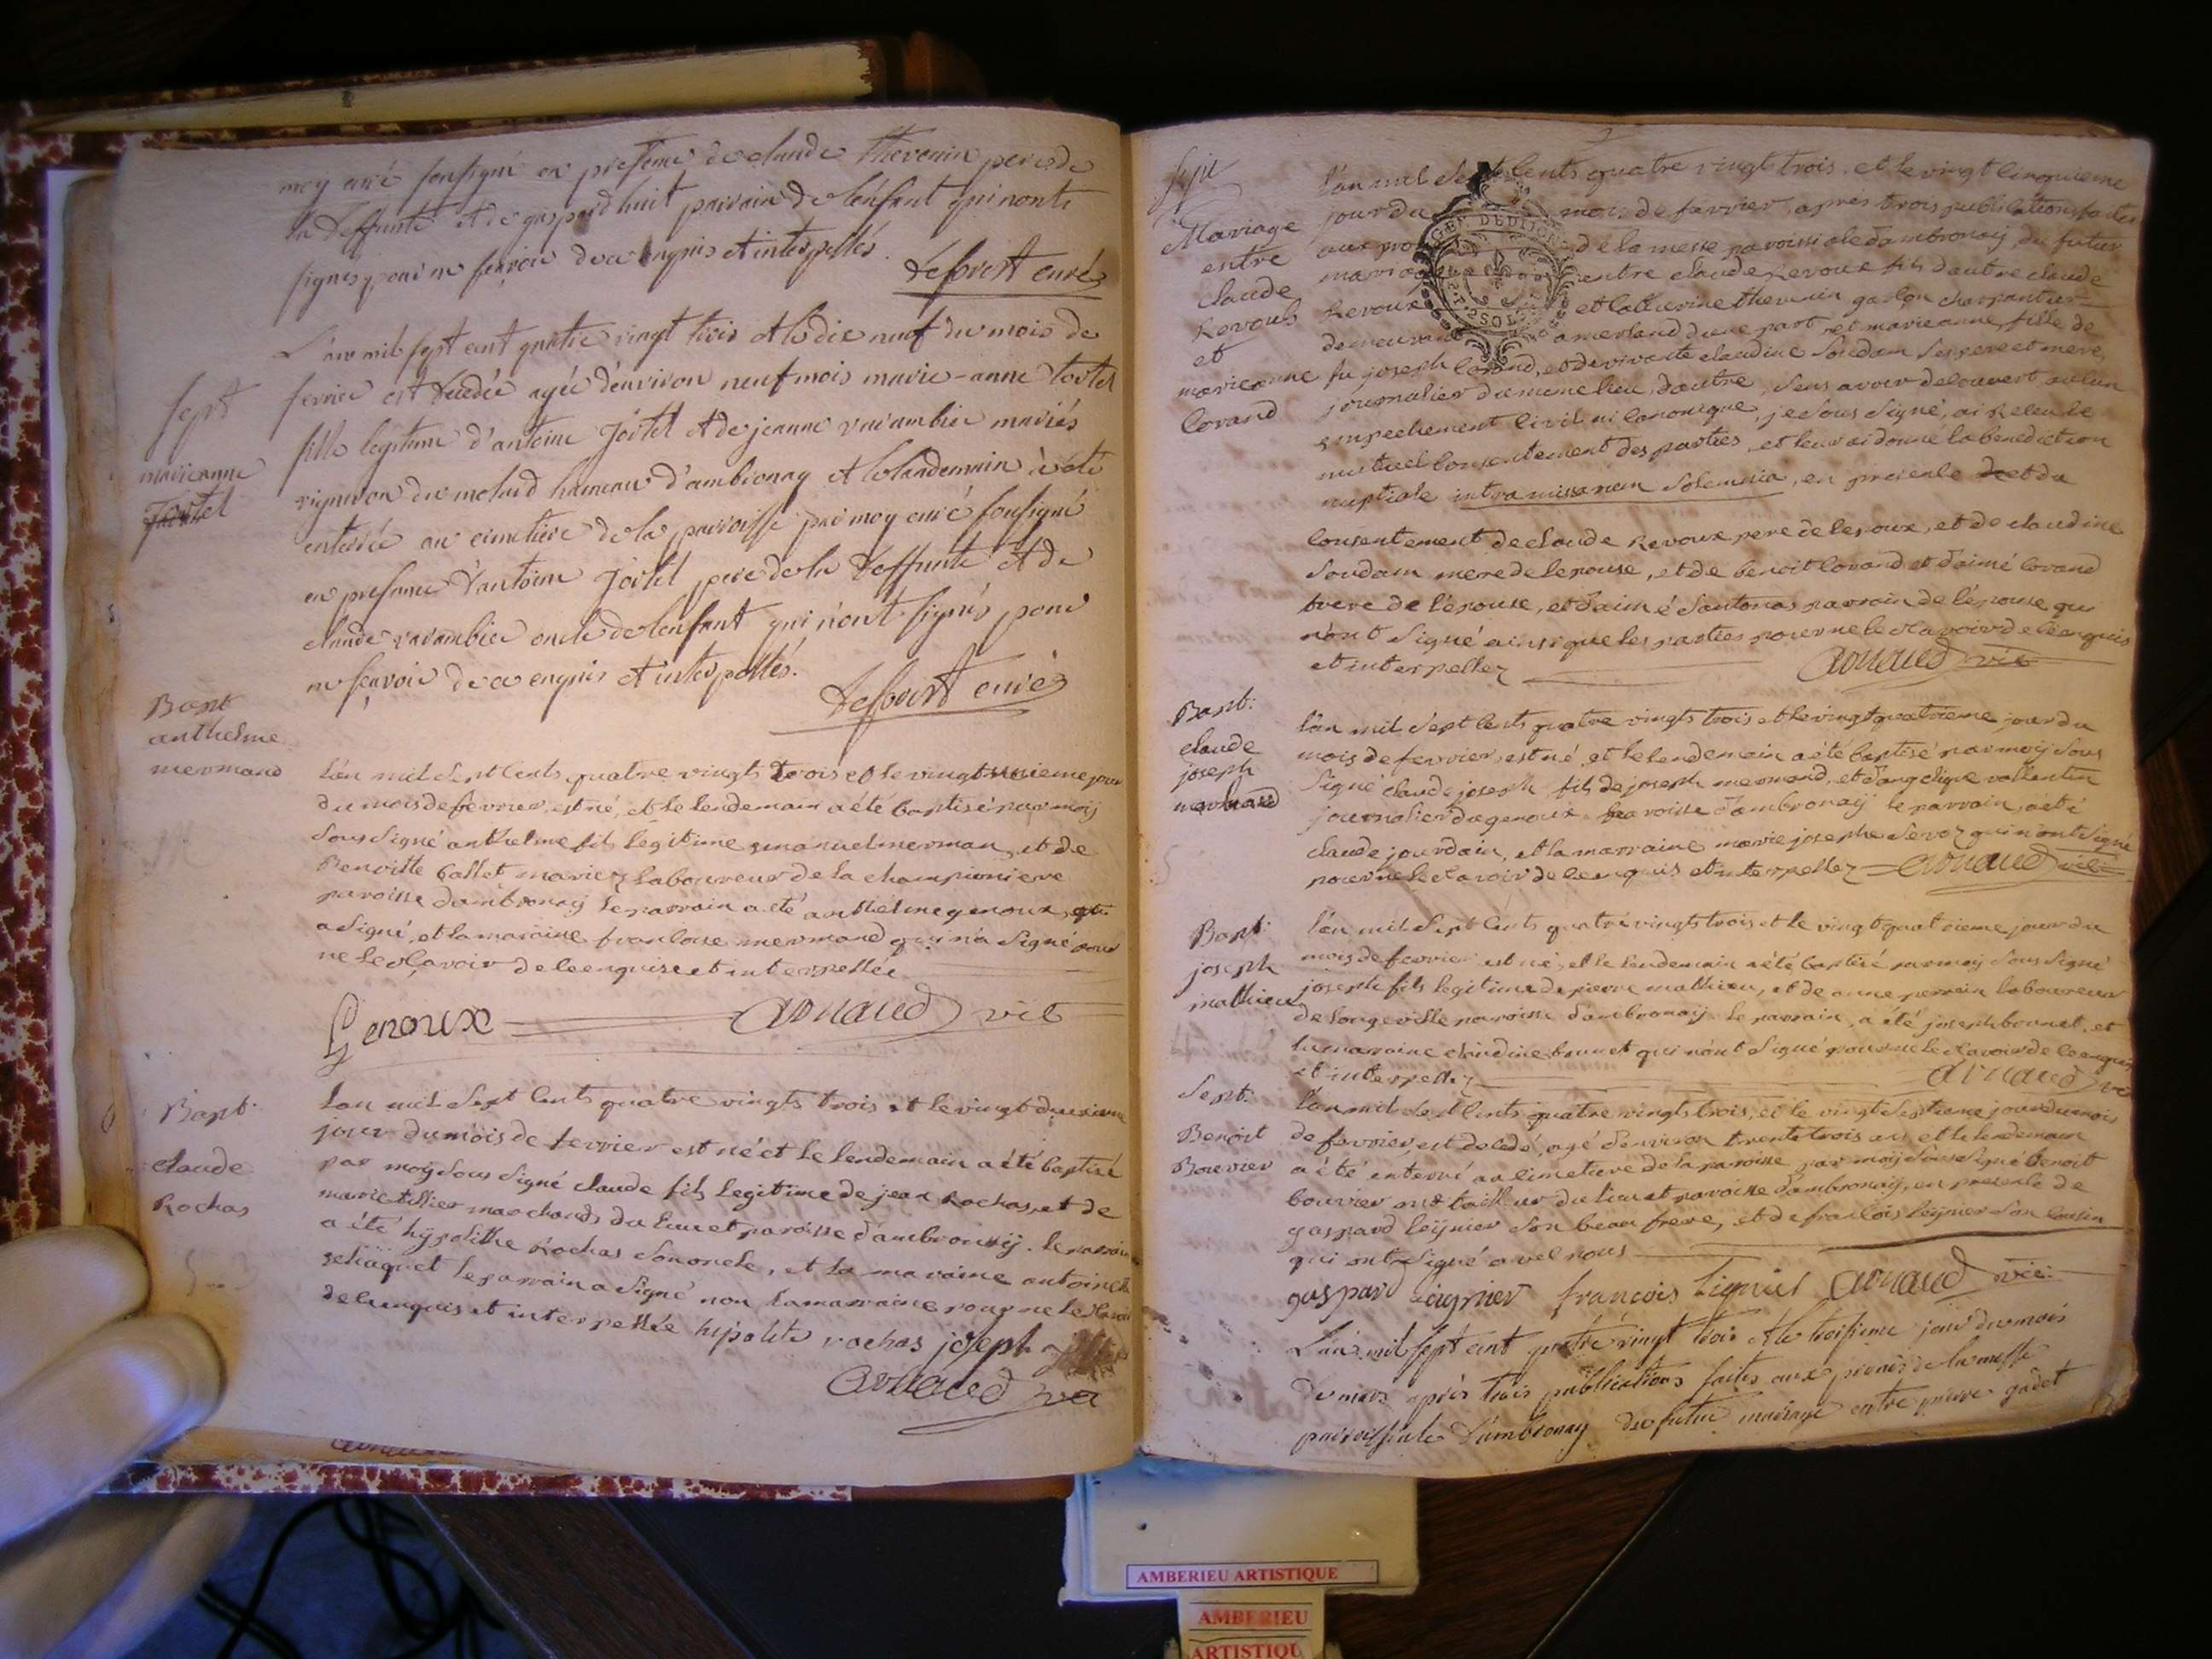 moy curé sousigné en presence de claude thevenin pere de
la deffunte et de gaspard huit parrain de l'enfant qui n'ont
signés pour ne sçavoir de ce enquis et interpellés.
Lefort curé
L'an mil sept cent quatre vingt trois et le dix neuf du mois de
fevrier est decedée agée d'environ neuf mois marie-anne
fille legitime d'antoine et de jeanne varambier mariés
vigneron du molard hameau d'ambronay et le landemain a été
enterrée au cimetiere de la parroisse par moy curé sousigné
en presence d'antoine pere de la deffunte et de
claude varambier oncle de l'enfant qui n'ont signés pour
ne sçavoir de ce enquis et interpellés.
curé
sept
marieanne
Bapt
anthelme
mermand
l'an mil sept cents quatre vingts trois et le vingt unieme jour
du mois de fevrier, est né, et le lendemain a été baptisé par moÿ
sous signé anthelme fils legitime emanuel merman, et de
Benoitte ballet mariez laboureur de la championiere
paroisse d'ambronaÿ le parrain a été anthelme genoux, qui
a signé, et la maraine francoise mermand qui n'a signé pour
ne le sçavoir de ce enquise et interpellée
Genoux arnaud vic
Bapt.
claude
Rochas
l'an mil sept cents quatre vingts trois et le vingt deuxieme
jour du mois de fevrier est né et le lendemain a été baptisé
par moÿ sous signé claude fils legitime de jean Rochas, et de
marie tillier marchands du lieu et paroisse d'ambronaÿ. le parrain
a été hÿpolithe Rochas son oncle, et la maraine antoinette
le parrain a signé non la marraine pour ne le sçavoir
de ce enquis et interpellée hipolite rochas joseph
arnaud vic
Mariage
entre
claude
Revoux
et
marieanne
lorand
l'an mil sept cents quatre vingt trois, et le vingt cinquieme
jour du mois de fevrier, après trois publications faites
aux de la messe paroissiale d'ambronaÿ, du futur
mariage entre claude Revoux fils d'autre claude
Revoux et catherine thevenin garçon charpantier
demeurant d'une part, et marieanne fille de
fu joseph lorand, et de vivante claudine soudan ses pere et mere,
journalier du meme lieu, d'autre, sans avoir decouvert aucun
empechement civil ni canonique, je sous signé, ai Receu le
mutuel consentement des parties, et leur ai donné la benediction
nuptiale intra missarum solemnia, en presence et du
consentement de claude Revoux pere de l'epoux, et de claudine
soudan mere de l'epouse, et de benoit lorand et d'aimé lorand
frere de l'épouse, et d'aimé parrain de l'épouse qui
n'ont signé ainsi que les parties pour ne le sçavoir de ce enquis
et interpellez arnaud vic
Bapt.
claude
joseph
mermand
l'an mil sept cents quatre vingts trois et le vingt quatrieme jour du
mois de fevrier, est né, et le lendemain a été baptisé par moÿ sous
signé claude joseph fils de joseph mermand, et d'angelique vallentin
journalier du genoux paroisse d'ambronaÿ le parrain a été
claude jourdain, et la marraine marie josephe qui n'ont signé
pour ne le sçavoir de ce enquis et interpellez arnaud vic
Bapt.
joseph
mathieu
l'an mil sept cents quatre vingts trois et le vingt quatrieme jour du
mois de fevrier est né, et le lendemain a été baptisé par moÿ sous signé
joseph fils legitime de pierre mathieu, et de anne perrein laboureur
de longeville paroisse d'ambronaÿ le parrain, a été joseph brunet, et
la marraine claudine brunet qui n'ont signé pour ne le sçavoir de ce enquis
et interpellez arnaud vic
Sept.
Benoit
Bouvier
l'an mil sept cents quatre vingts trois, et le vingt septieme jour du mois
de fevrier, est decedé, agé d'environ trente trois ans, et le lendemain
a été enterré au cimetiere de la paroisse par moÿ sous signé benoit
bouvier me tailleur du lieu et paroisse d'ambronaÿ, en presence de
gaspard leÿnier son beau frere, et de francois leÿnier son cousin
qui ont signé avec nous
gaspard francois arnaud vic.
L'an mil sept cent quatre vingt trois et le troisieme jour du mois
de mars après trois publications faites aux prones de la messe
parroissiale d'ambronay du futur mariage entre pierre gadet
AMBERIEU ARTISTIQUE
AMBERIEU
ARTISTIQU